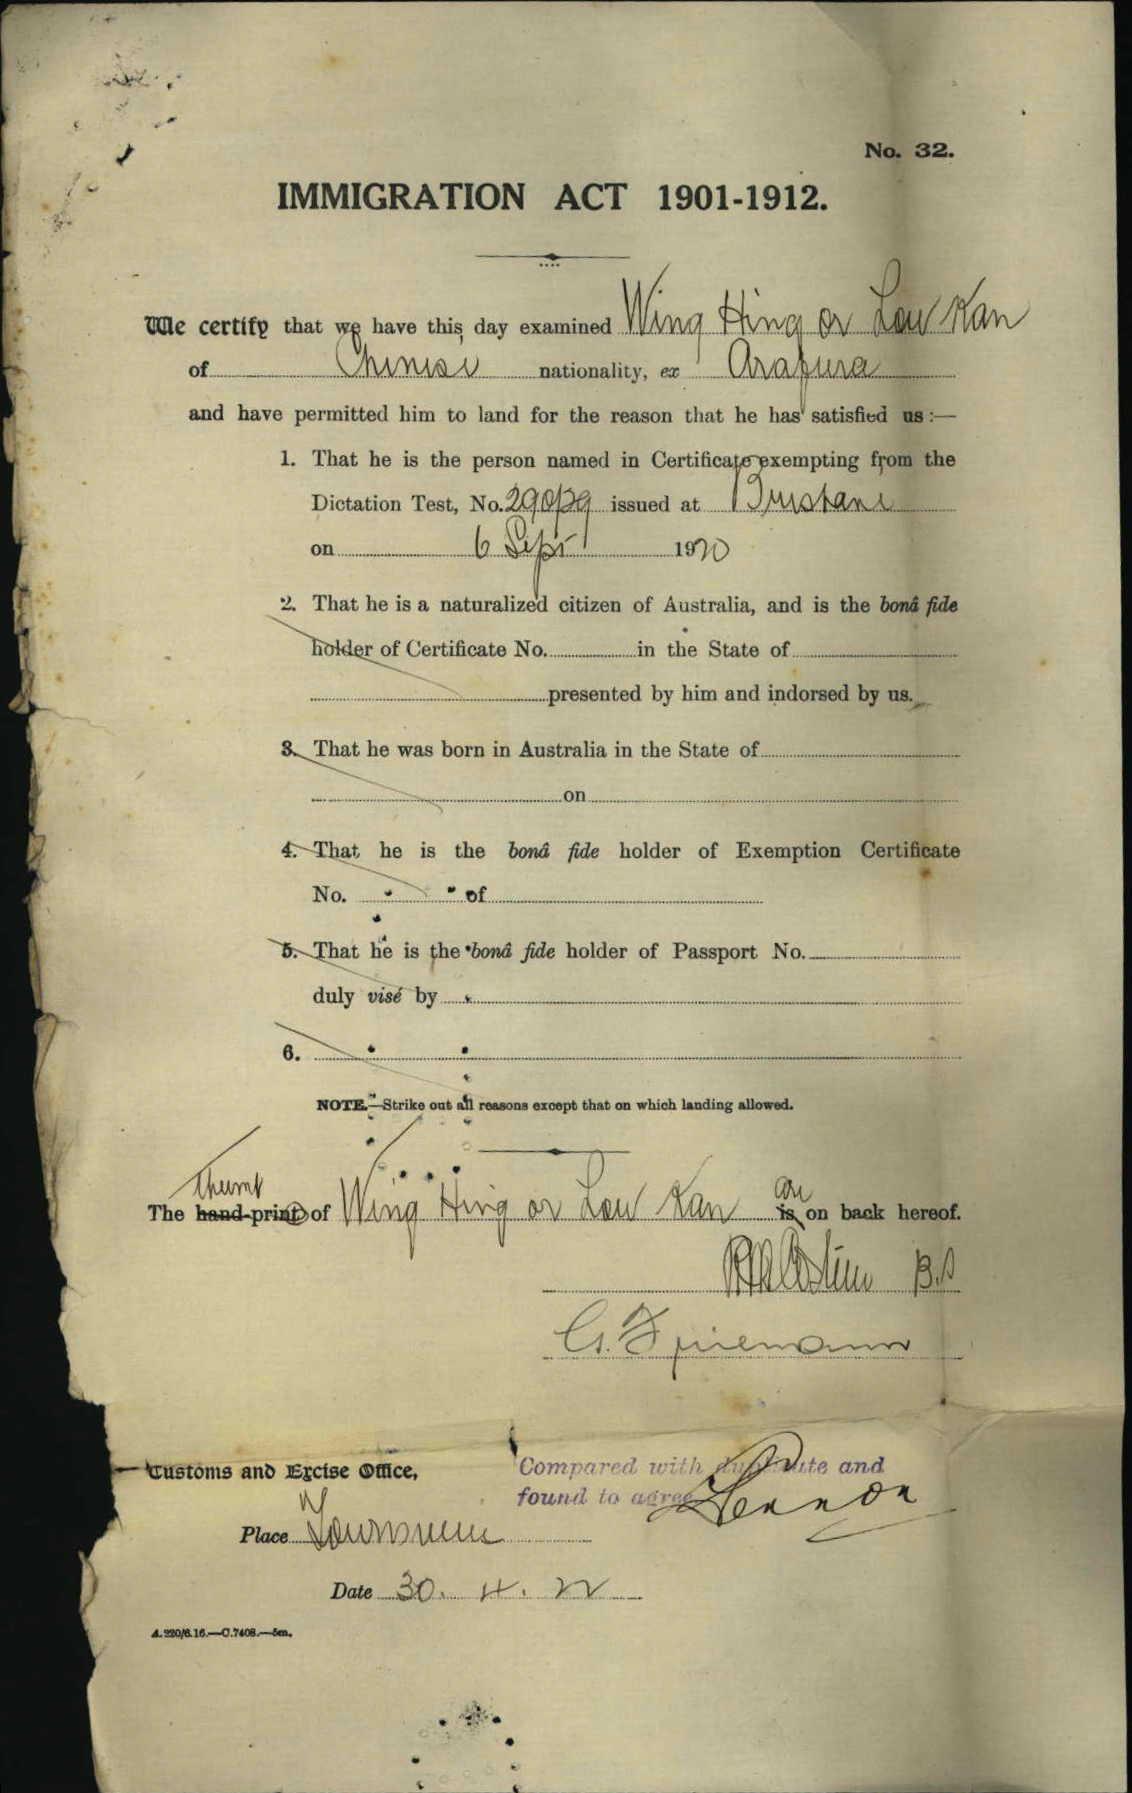 No. 32.
IMMIGRATION ACT 1901-1912.
We certify that we have this day examined Wing Hing or Low Kan
of Chinese nationality, ex Arafura
and have permitted him to land for the reason that he has satisfied us :—
1. That he is the person named in Certificate exempting from the
Dictation Test, No. issued at Brisbane
on 6 Sept 1920
2. That he is a naturalized citizen of Australia, and is the bonâ fide
holder of Certificate No. in the State of
presented by him and indorsed by us.
3. That he was born in Australia in the State of
on
4. That he is the bonâ fide holder of Exemption Certificate
No. of
5. That he is the bonâ fide holder of Passport No.
duly visé by
6.
NOTE.—Strike out all reasons except that on which landing allowed.
thumb are
The hand-print of Wing Hing or Low Kan is on back hereof.
Customs and Excise Office,
Compared with duplicate and
found to agree
Lennon
Place Townsville
Date 30. 4. 22
A.220/6.16.—C.7408.—5m.